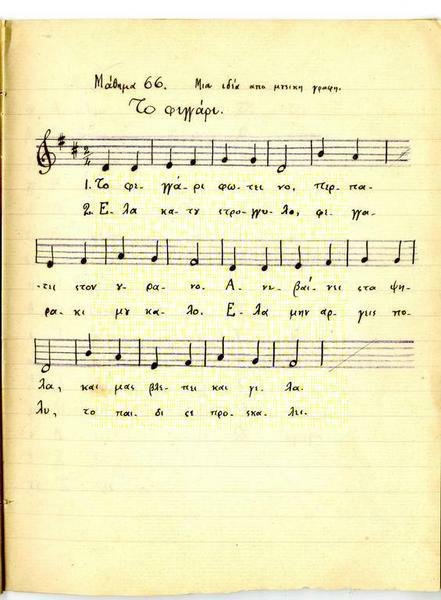 Μάθημα 66. Μια ιδέα απο μυσικη γραφη.
Το φιγγάρι.
1. Το φι- γγά- ρι φω- τει νο, περ- πα-
2. Ε- λα κα- τυ στρο- γγυ- λο, φι- γγα-
-τει στον υ- ρα- νο. Α- νε- βαί- νει στα ψη-
ρα- κι μυ κα- λο. Ε- λα μην αρ- γεις πο-
λα, και μας βλε- πει και γε- λα.
λυ, το παι- δι σε προ- σκα- λει.